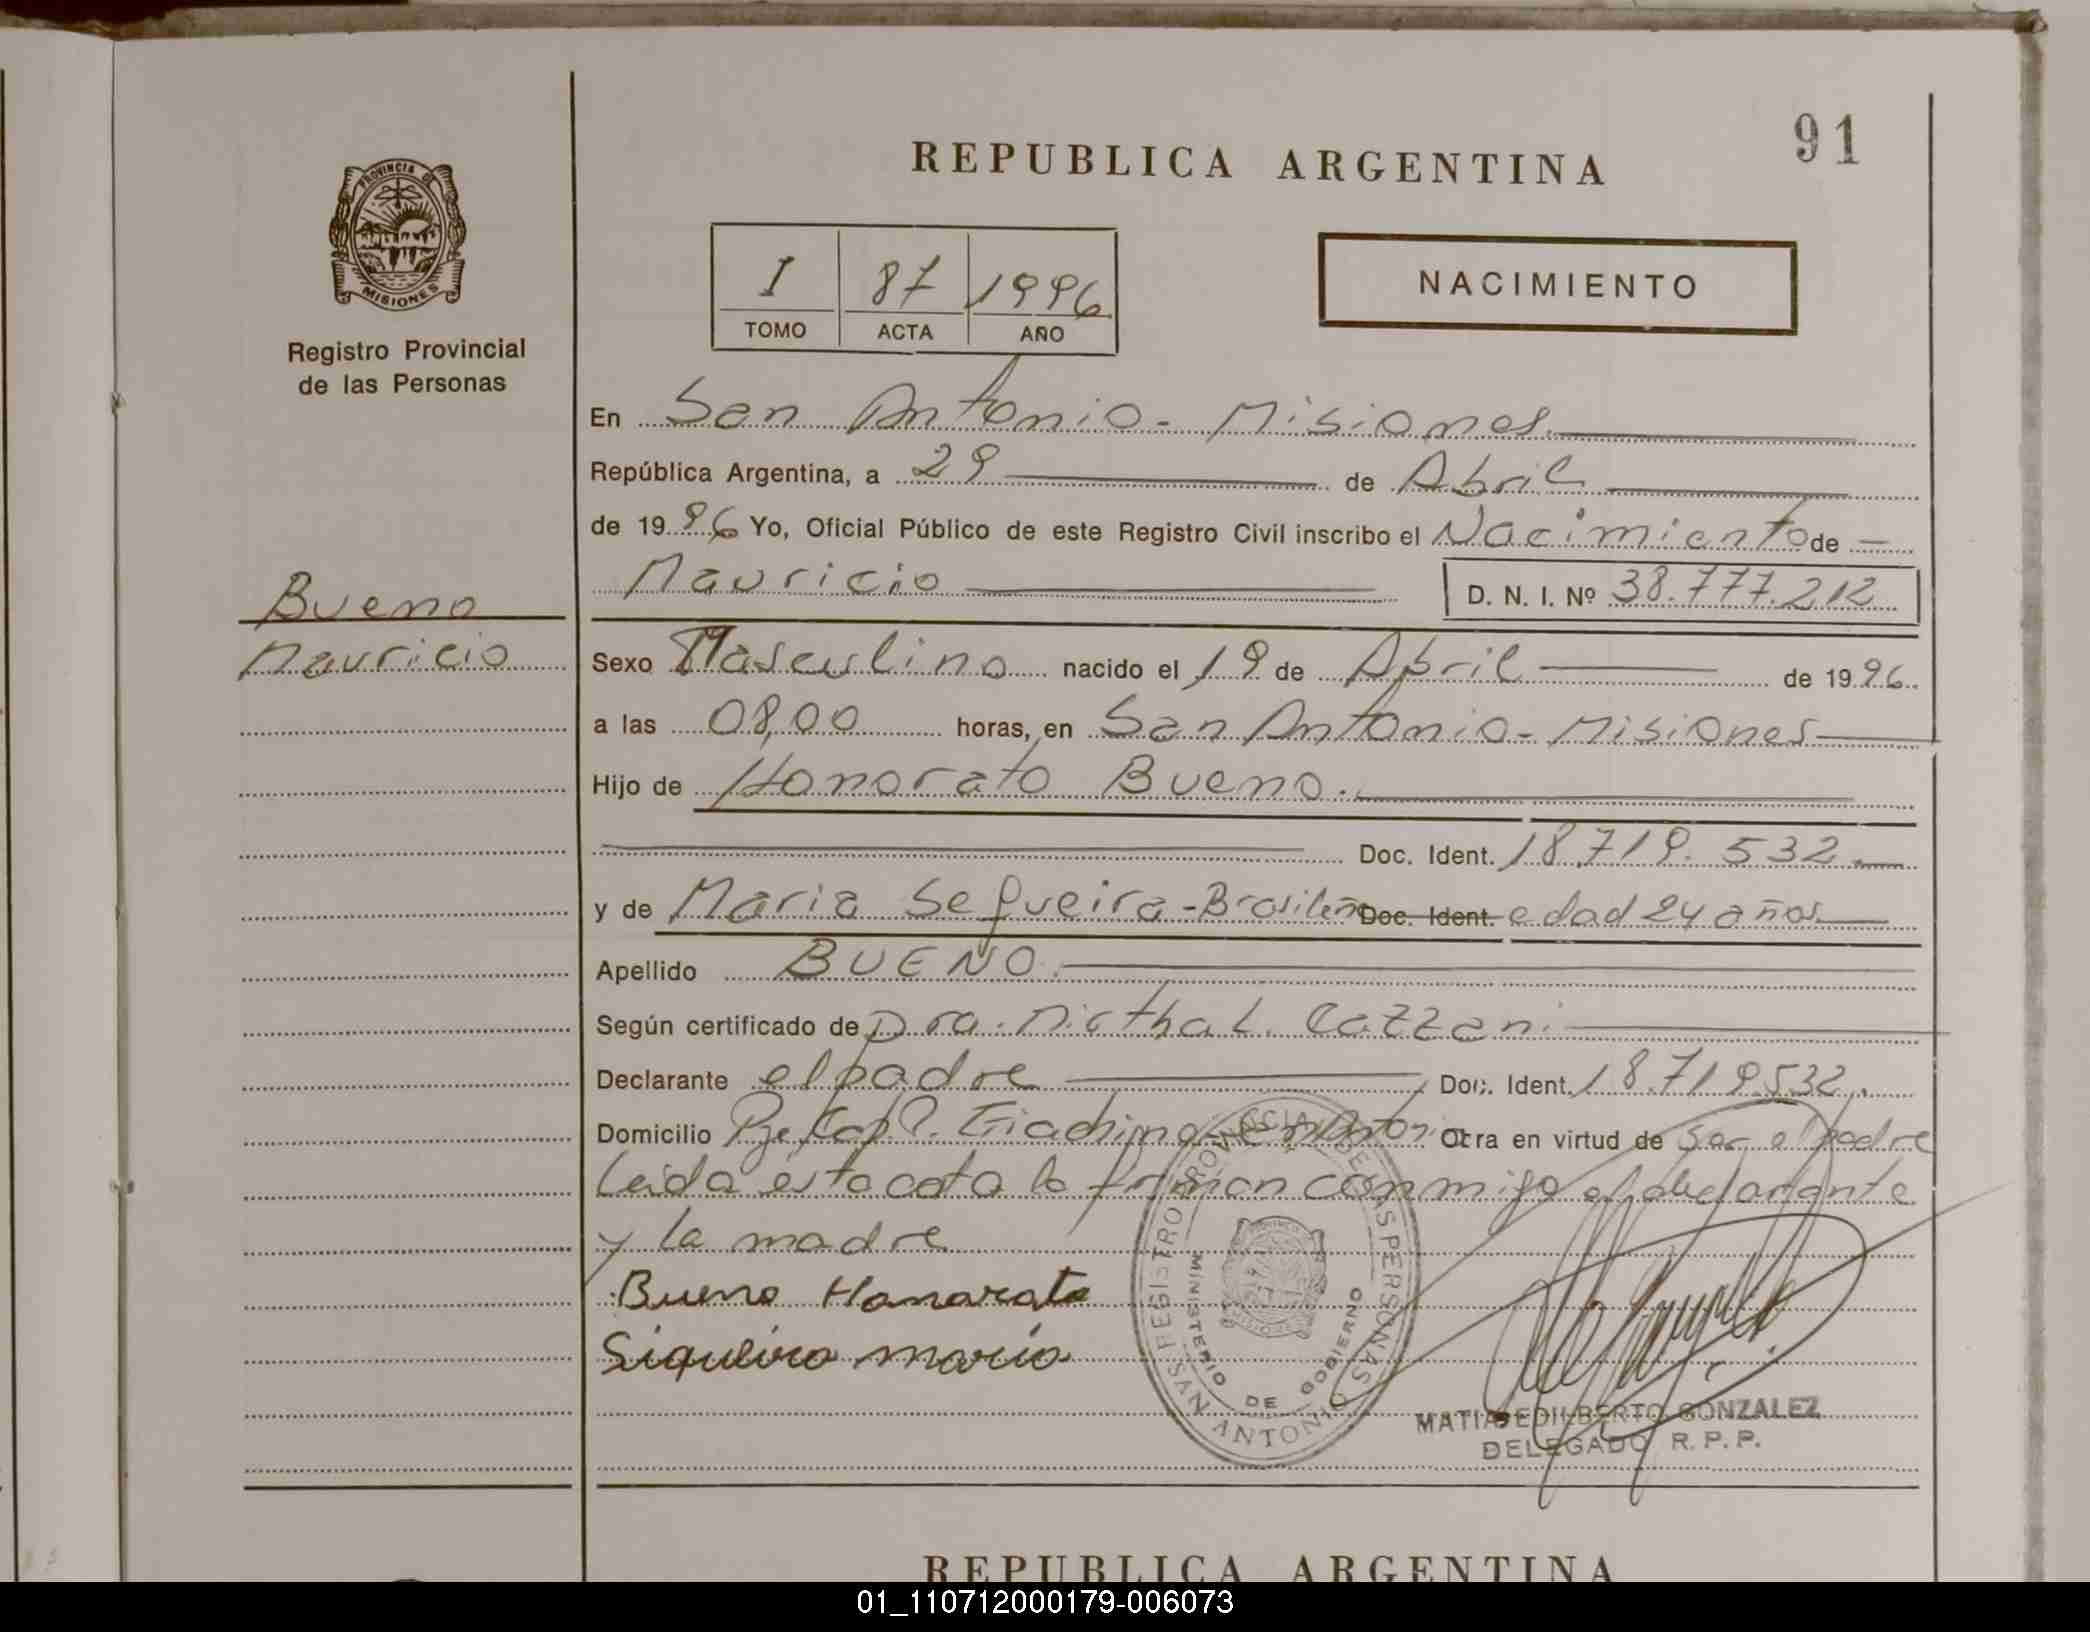 91
REPUBLICA ARGENTINA
PROVINCIA DE
MISIONES
I 87 1996
TOMO ACTA AÑO
NACIMIENTO
Registro Provincial
de las Personas
En San Antonio - Misiones
República Argentina, a 29 de Abril
de 1996 Yo, Oficial Público de este Registro Civil inscribo el Nacimiento de
Mauricio D. N. I. Nº 38.777.212
Bueno
Mauricio
Sexo Masculino nacido el 19 de Abril de 1996.
a las 08,00 horas, en San Antonio - Misiones
Hijo de Honorato Bueno.
Doc. Ident. 18.719.532.
y de Maria Sequeira - Brasileña Doc. Ident. edad 24 años
Apellido BUENO.
Según certificado de Dra. Mirtha L. Cazzani
Declarante el padre Doc. Ident. 18.719532.
Domicilio Otra en virtud de Ser el padre
Leida esta acta la firman conmigo el declarante
y la madre
Bueno Honarato
Siqueira maria
REGISTRO PROVINCIAL DE LAS PERSONAS
MINISTERIO DE GOBIERNO
SAN ANTONIO
MATIAS EDILBERTO GONZALEZ
DELEGADO R. P. P.
REPUBLICA ARGENTINA
01_110712000179-006073